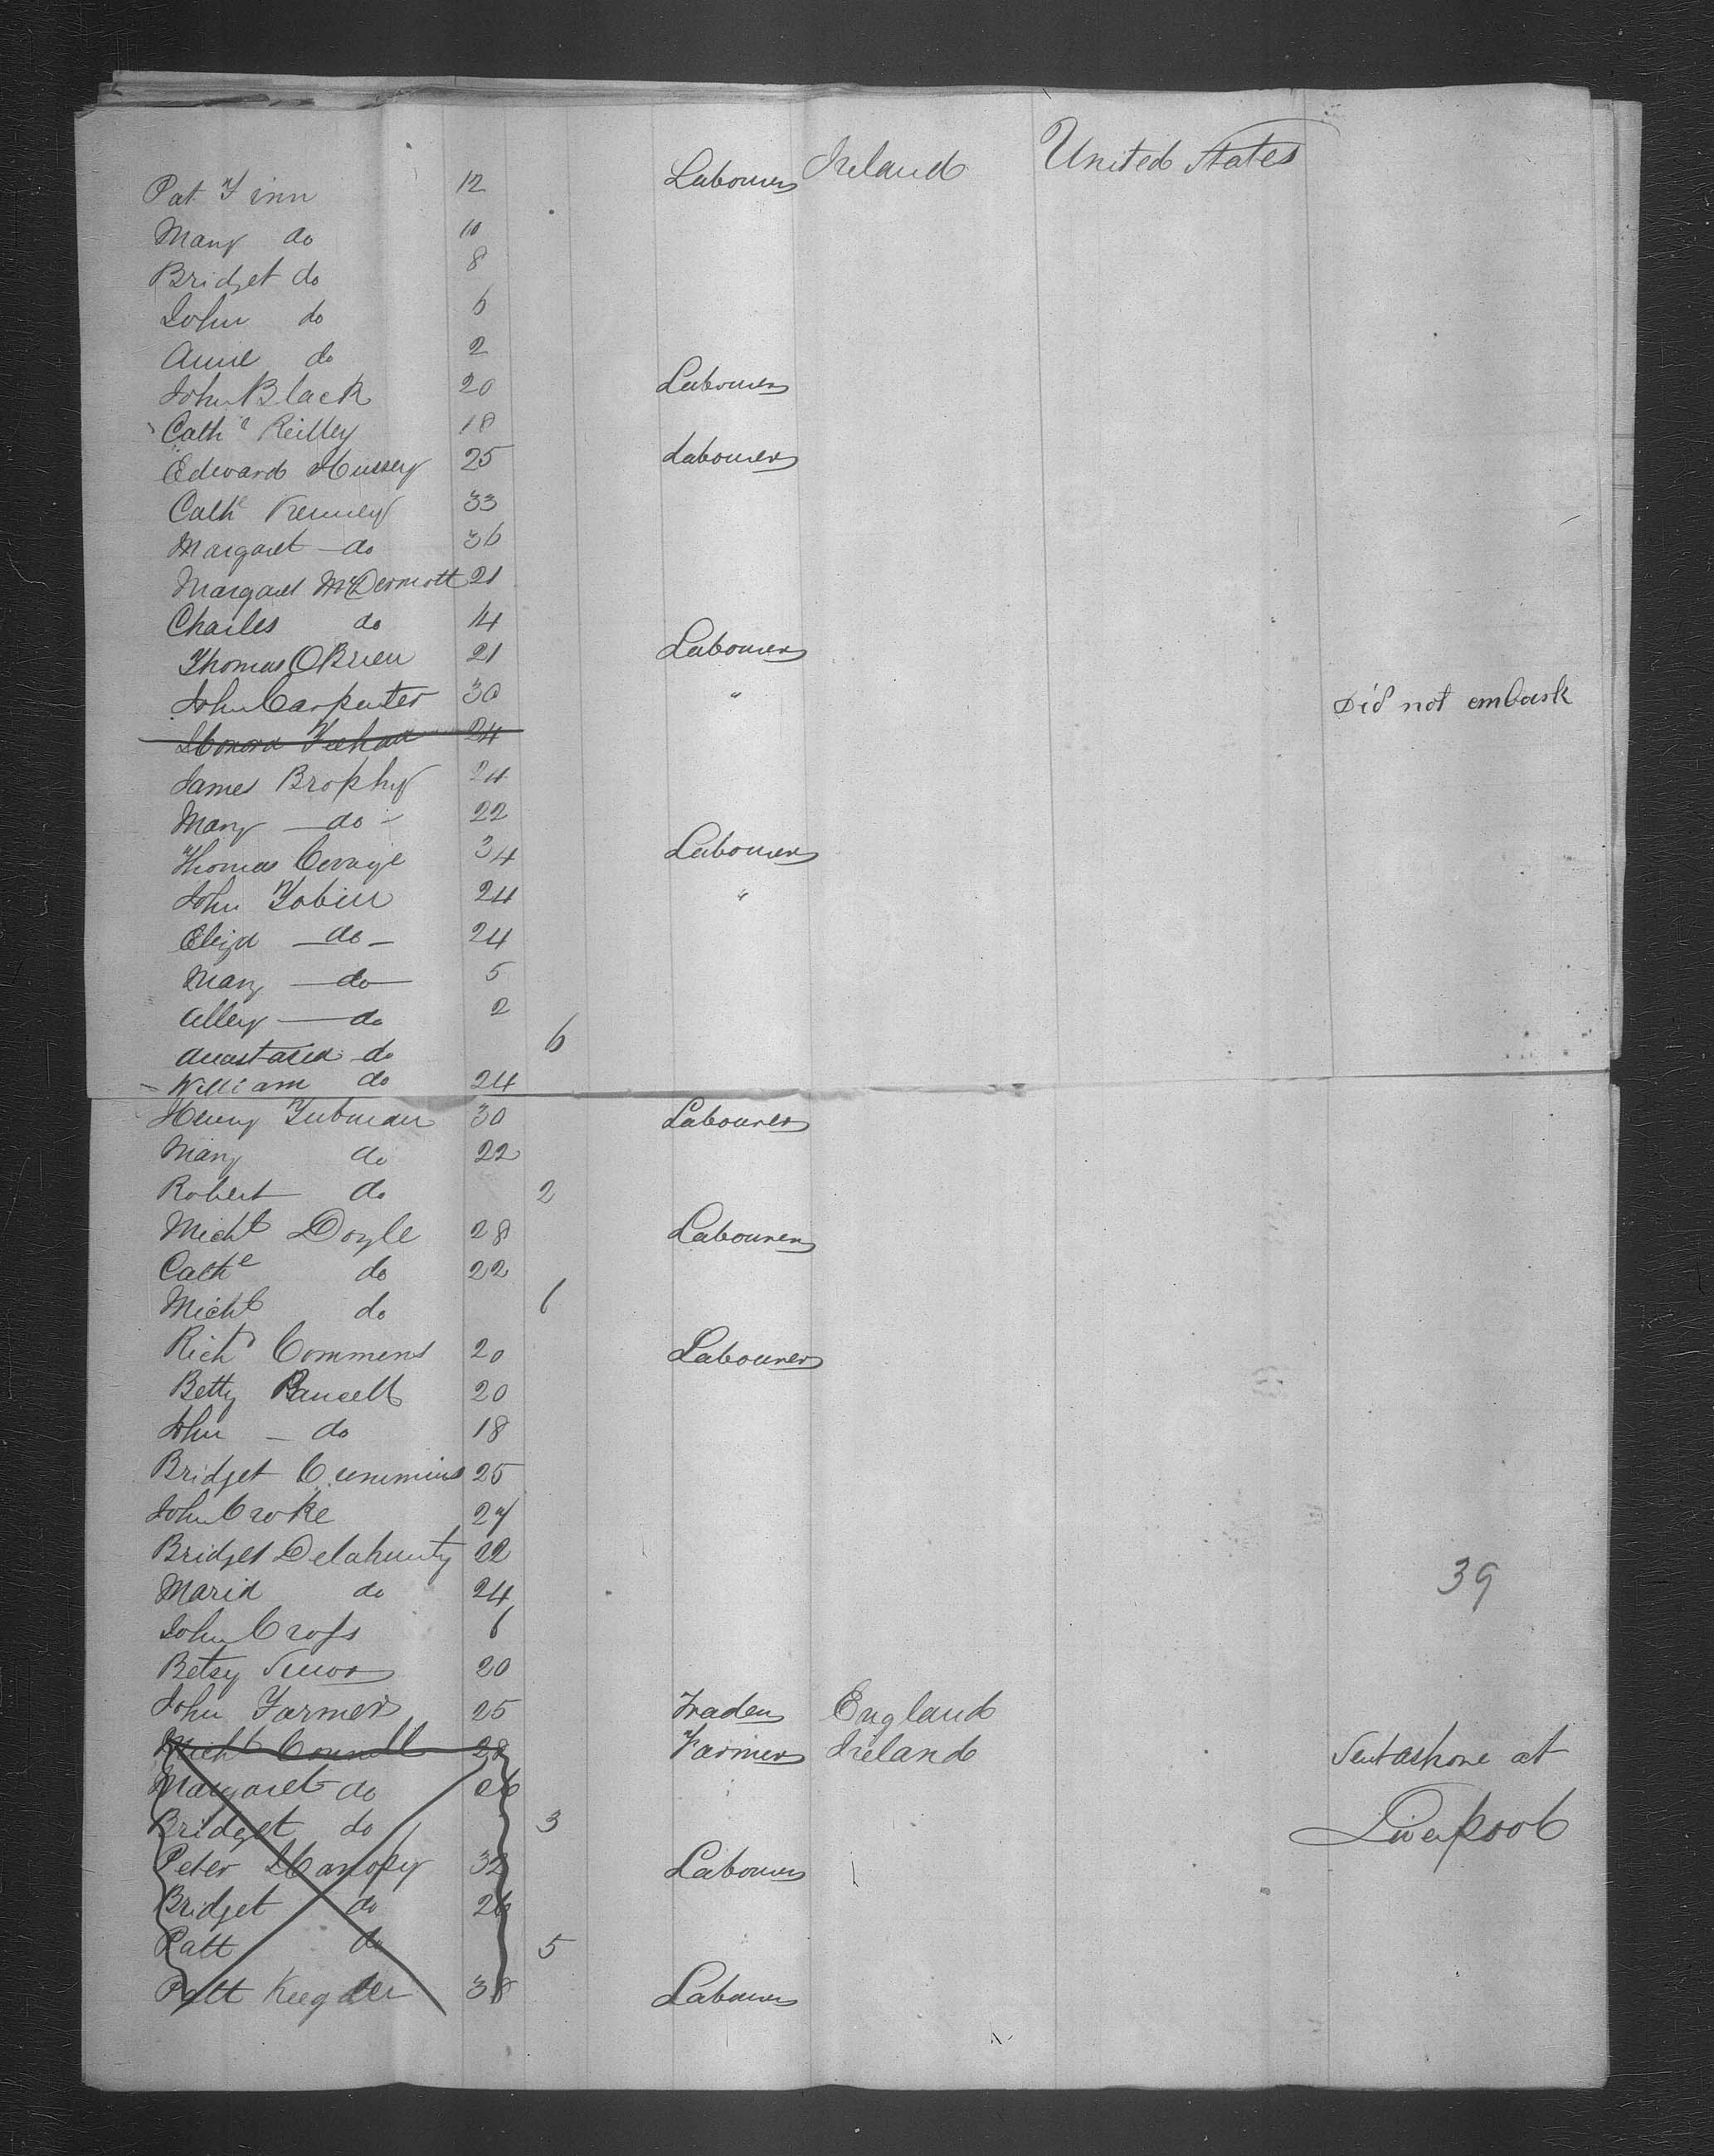 Pat Finn 12 Labourer Ireland United States
Mary do 10
Bridget do 8
John do 6
Annie do 2
John Black 20 Labourer
Cathe Reilley 18
Edward Hussey 25 Labourer
Cathe Kenney 33
Margaret do 36
Margaret McDermott 21
Charles do 14
Thomas OBrien 21 Labourer
John Carpenter 30 "
Honora Feehan 24 Did not embark
James Brophy 24
Mary do 22
Thomas 34 Labourer
John Tobin 24 "
Eliza do 24
Mary do 5
Alley do 2
Anastasia do 6
William do 24
Henry Tubman 30 Labourer
Mary do 22
Robert do 2
Michl Doyle 28 Labourer
Cathe do 22
Michl do 6
Richd Commens 20 Labourer
Betty 20
John do 18
Bridget Cummins 25
John Croke 27
Bridget Delahunty 22
Maria do 24
39
John Cross 6
Betsy 20
John Farmer 25 Trader England
Michl Connell 28 Farmer Ireland Sent ashore at
Margaret do 26
Bridget do 3 Liverpool
Peter 32 Labourer
Bridget do 26
Patt do 5
Patt 38 Labourer